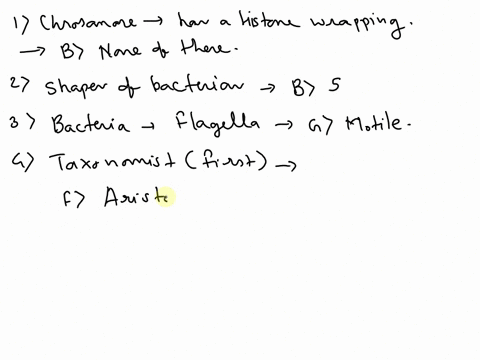 1> Chrosomore → have a histone wrapping.
→ B> None of there.
2> Shaper of bacterian → B> 5
3> Bacteria → flagella → G> Motile.
4> Taxonomist (first) →
F> Arist